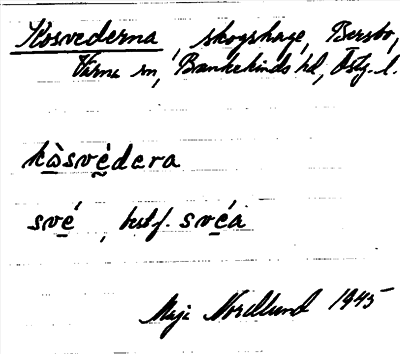 Kosvederna, skogshage, Bersbo,
Värna sn, Bankekinds hd, Östg. l.
kàsvèdera
své, best f. svéa
Maja Nordlund 1945